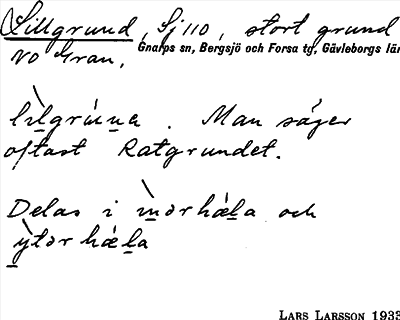 Lillgrund, Sj 110, stort grund
NO Gran,
Gnarps sn, Bergsjö och Forsa tg, Gävleborgs län
Man säger
oftast Ratgrundet.
Delas i och
LARS LARSSON 1933